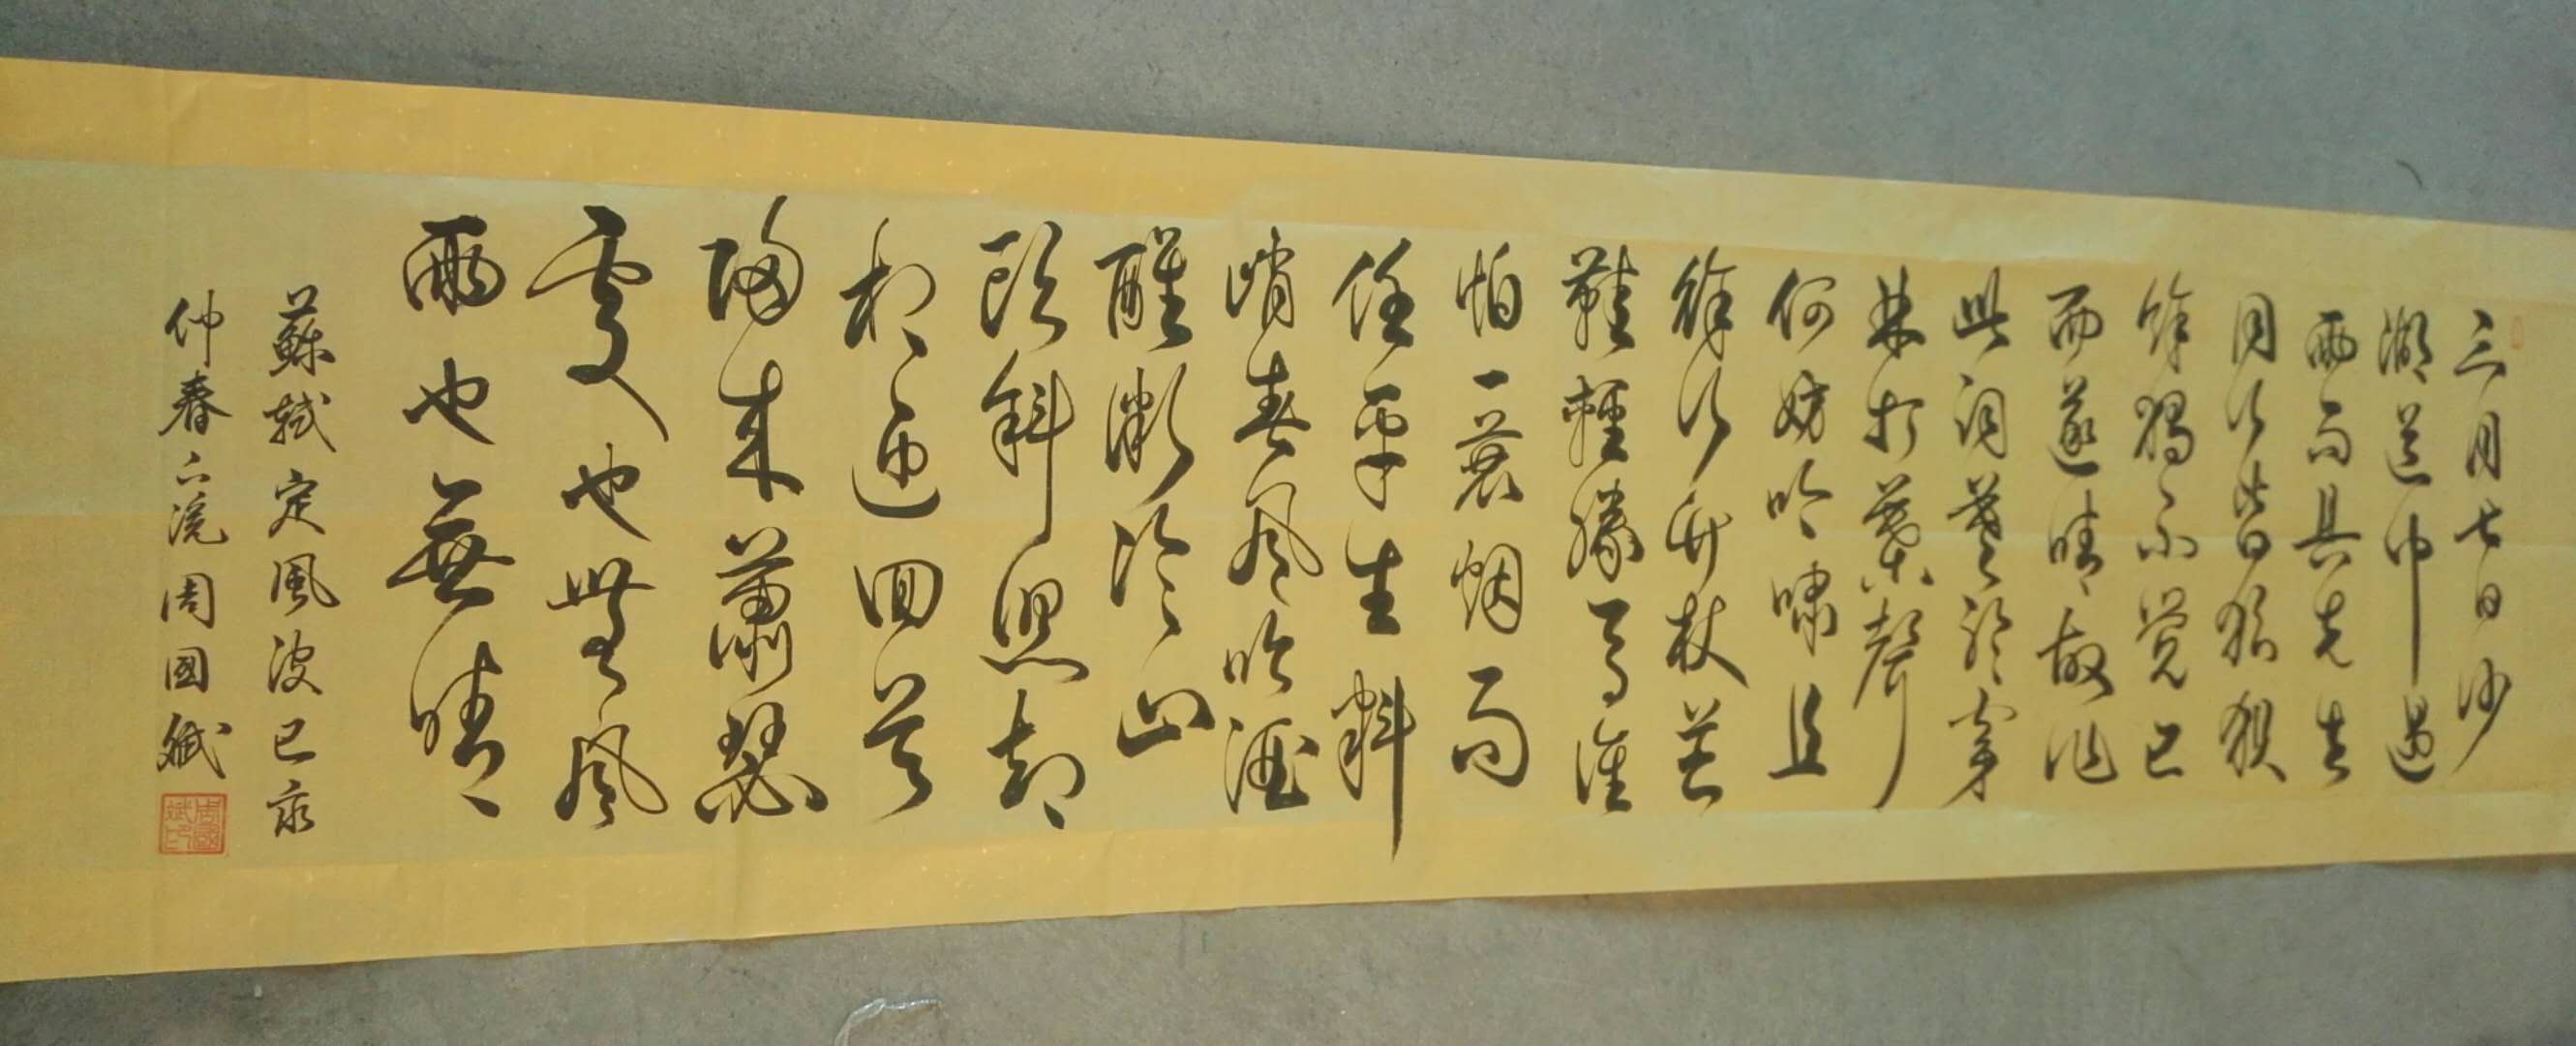 三月七日沙
湖道中遇
雨雨具先去
同行皆狼狽
餘獨不覺已
而遂晴故作
此詞莫聽穿
林打葉聲
何妨吟嘯且
徐行竹杖芒
鞋輕勝馬誰
怕一蓑烟雨
任平生料
峭春風吹酒
醒微冷山
頭斜照卻
相迎回首
歸來蕭瑟
處也無風
雨也無晴
蘇軾定風波己亥
仲春周國斌
周國斌印